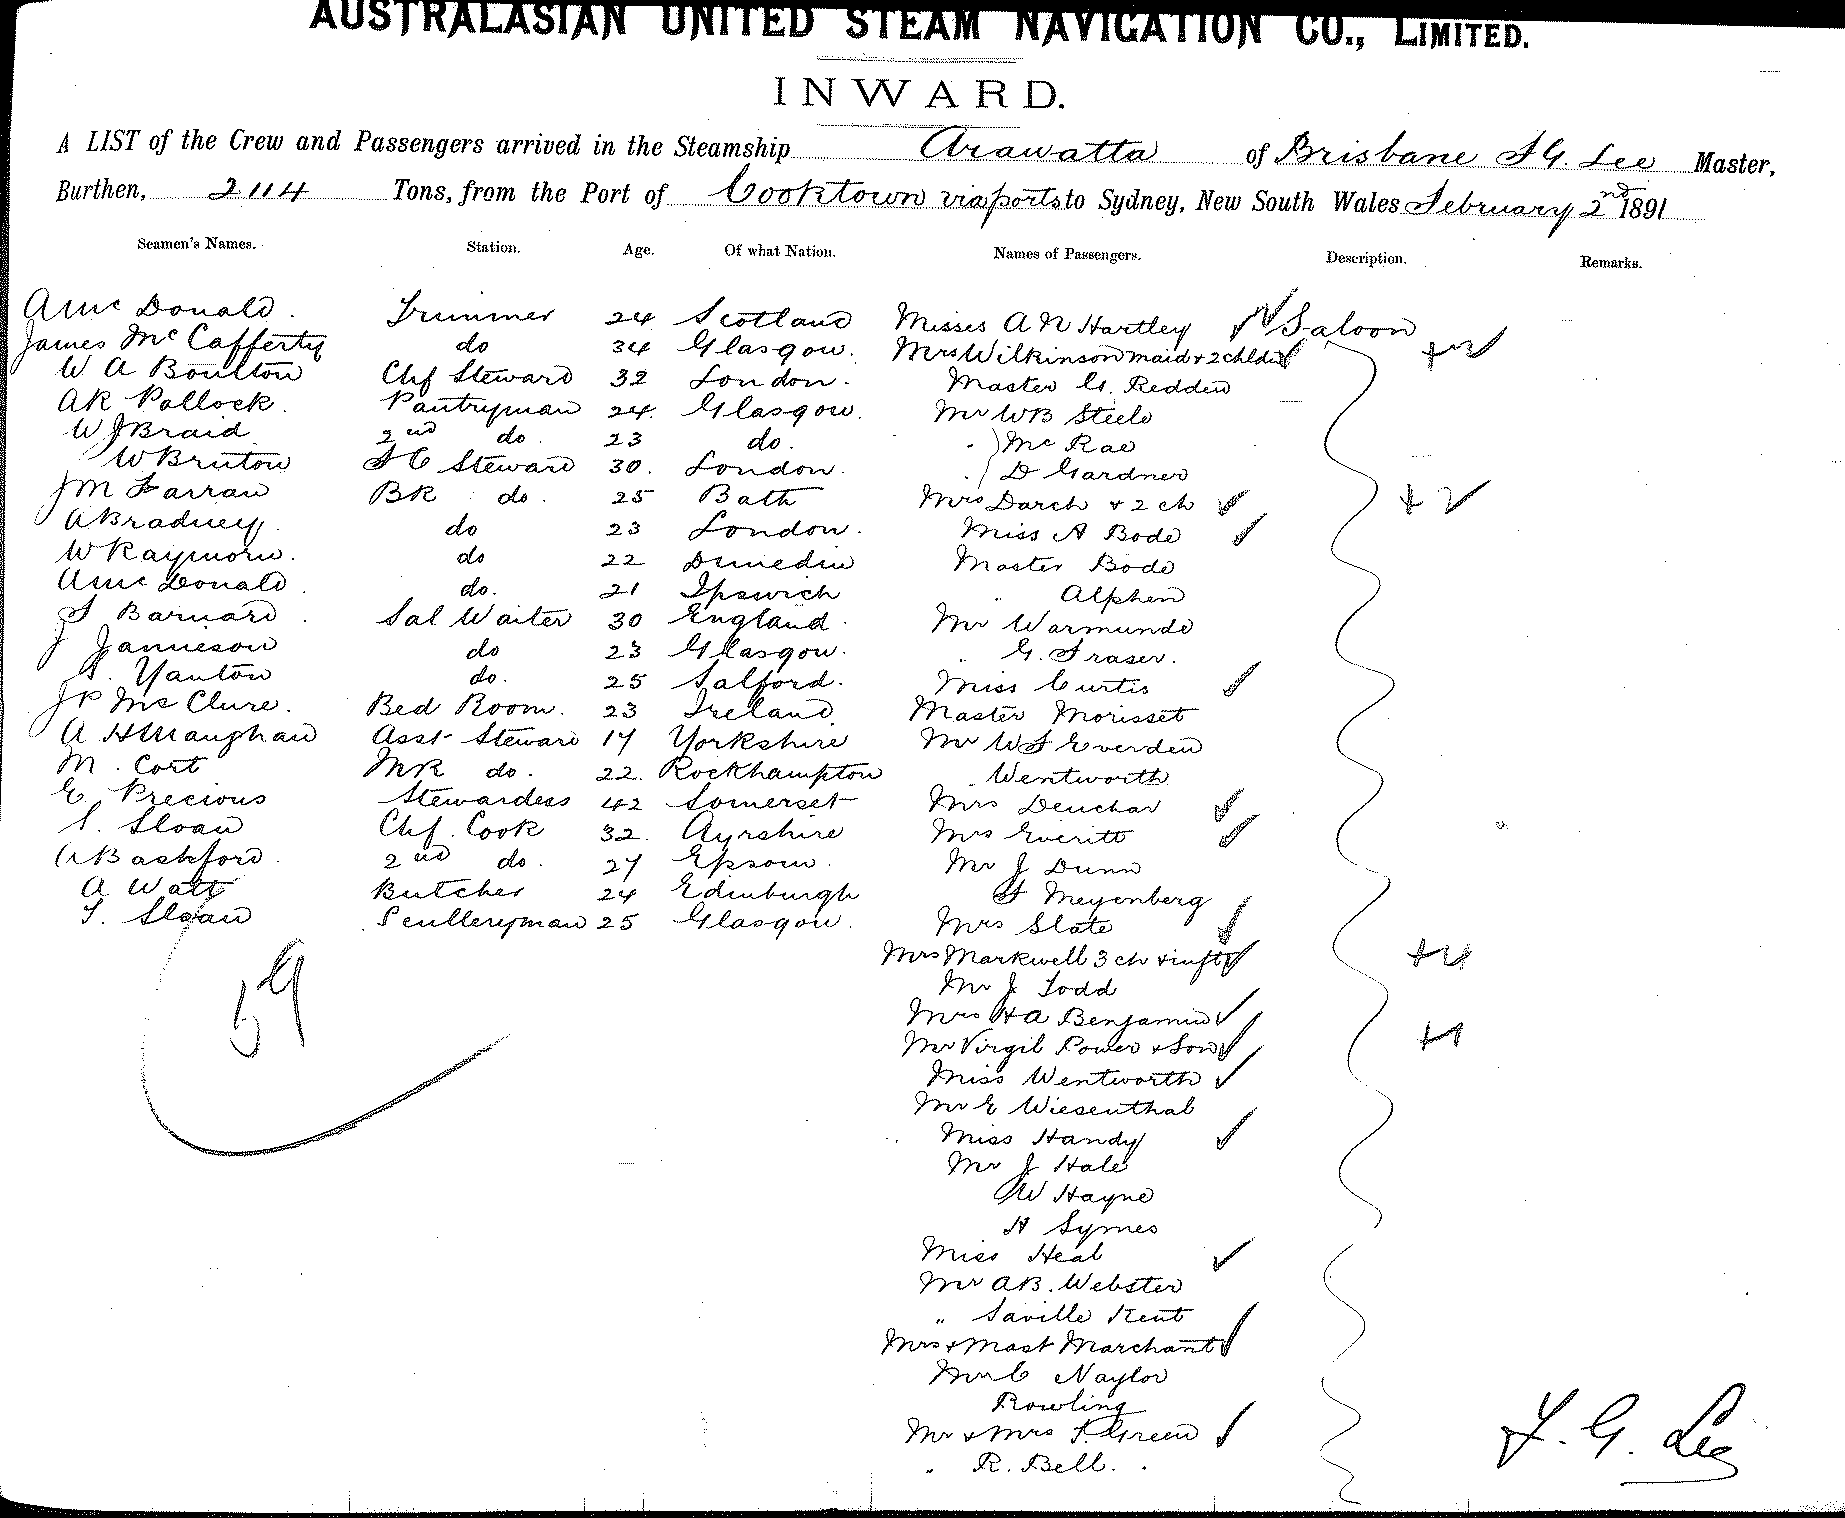 AUSTRALASIAN UNITED STEAM NAVIGATION CO., LIMITED.
INWARD.
A LIST of the Crew and Passengers arrived in the Steamship Arawatta of Brisbane F G. Lee Master,
Burthen, 2114 Tons, from the Port of Cooktown via ports to Sydney, New South Wales February 2nd 1891
Seamen's Names. Station. Age. Of what Nation. Names of Passengers. Description. Remarks.
A Mc Donald. Trimmer 24 Scotland Misses A N Hartley Saloon
James Mc Cafferty do 34 Glasgow. Mrs Wilkinson maid + 2 chldn
W A Boulton Chf Steward 32 London. Master G. Redden
AR Pollock. Pantryman 24. Glasgow. Mr WB Steele
W J Braid 2nd do. 23 do. Mc Rae
W Bruton F C Steward 30. London. D Gardner
J M Farran BR do. 25 Bath Mrs Darch + 2 ch + 2
A Bradney. do 23 London. Miss A Bode
W Raymorn. do 22 Dunedin Master Bode
A Mc Donald do. 21 Ipswich " Alphen
F Barnard Sal Waiter 30 England. Mr Warmunde
J Jamieson do 23 Glasgow. " G. Fraser.
Yanton do. 25 Salford. Miss Curtis
JP Mc Clure. Bed Room. 23 Ireland Master Morisset
A H Maughan Asst Steward 17 Yorkshire Mr W F Everden
M. Cort MR do. 22. Rockhampton Wentworth
E. Precious Stewardess 42 Somerset Mrs Deuchar
S. Sloan Chf. Cook 32. Ayrshire Mrs Everitt
Bashford 2nd do. 27 Epsom. Mr J Dunn
A Watt Butcher 24 Edinburgh F Meyenberg
T. Sloan Sculleryman 25 Glasgow. Mrs Slate
59 Mrs Markwell 3 ch + inft + 4
Mr J Todd
Mrs H A Benjamin
Mr Virgil Power + Son + 1
Miss Wentworth
Mr E Wiesenthal
Miss Handy
Mr J Hale
W Hayne
H Symes
Miss Heal
Mr A B. Webster
" Saville Kent
Mrs + Mast Marchant
Mr C Naylor
Rowling
Mr + Mrs T. Green
" R. Bell.
F. G. Lee